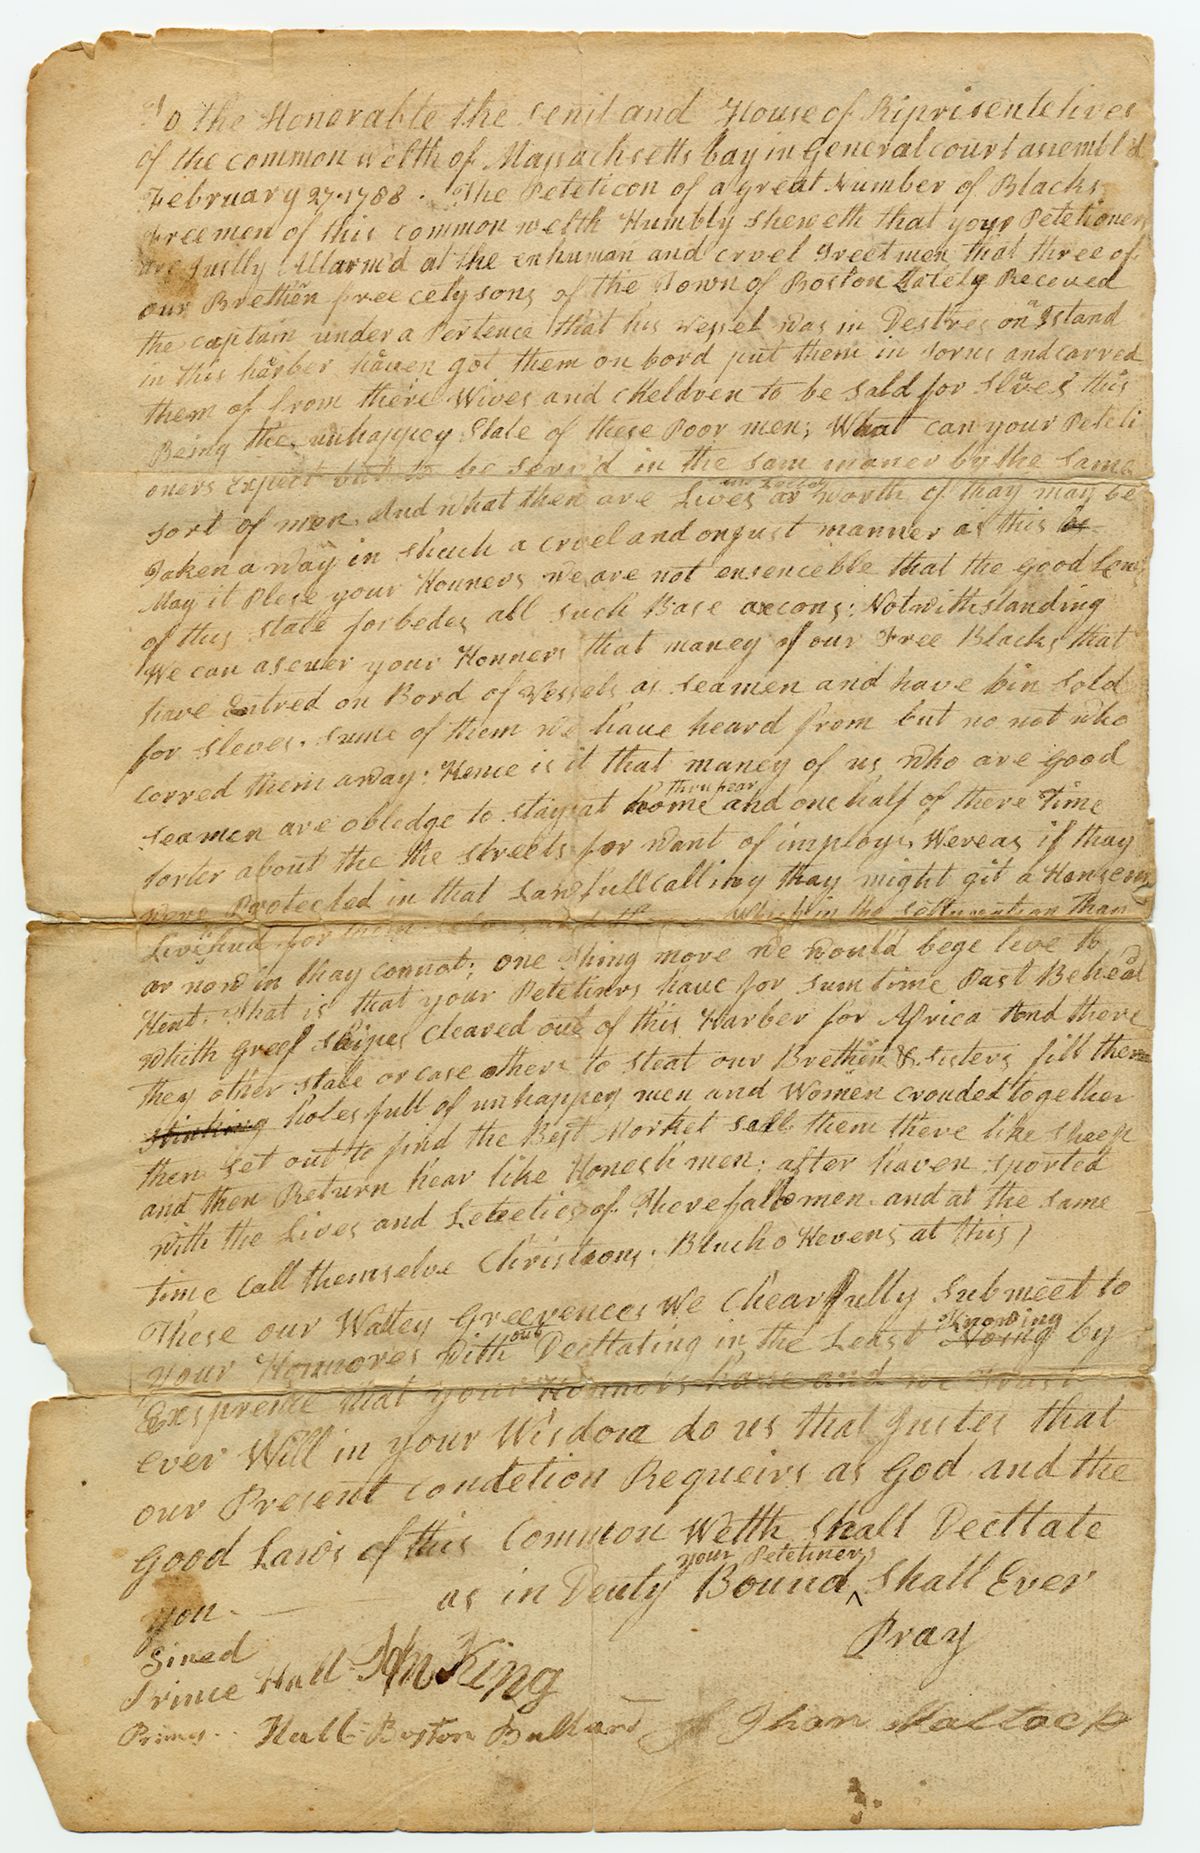 To the Honorable the Senit and House of Riprisentetives
of the common Welth of Massachsetts bay in General court assembl'd
February 27 1788. The Peteticon of a great Number of Blacks
Freemen of this common welth Humbly sheweth that your Petetioners
are Justly Allarm'd at the enhuman and cruel Treetmen that three of
our Brethen free cetysons of the Town of Boston Lately Receved
the captain under a Pertence that his vessel was in Destres on a Island
in this harber haven got them on bord put them in Iorns and carred
them of from there Wives and cheldren to be sold for slaves this
Being the unhappey State of these Poor men; What can your Peteti
oners expect but to be Serv'd in the Sam maner by the Same
sort of men. And what then are Lives ar worth if thay may be
Taken a Way in shuch a cruel and onjust manner as this is
May it Plese your Honners we are not ensenceble that the good Lows
of this State forbedes all such Base axcons: Notwithstanding
We can ascuer your Honners that maney of our Free Blacks that
have Entred on Bord of Vessels as seamen and have bin Sold
for Sleves. sume of them we have heard from but no not who
corred them away: Hence is it that maney of us who are good
thru fear
seamen are obledge to stay at home and one half of there Time
lorter about the the streets for want of imploy: Wereas if thay
were Protected in that Lawfull calling thay might git a Hansom
Livehud for them which in the setturation than
ar now in thay connot; one thing more we would bege leve to
Hent. That is that your Petetiners have for sum time Past Beheald
whith greef ships cleared out of this Harber for Africa And there
they other steal or case others to steal our Brethen & sisters fill them
stinking holes full of unhappey men and Women crouded together
then set out to find the Best Morket sell them there like sheep
and then Return hear like Honesh men; after haven sported
with the Lives and Lebeties of there fallo men. and at the same
time call themselve Christeons: Blush o Hevens at this)
These our Wattey Greevences We Chearfully Submeet to
Knowing
your Honnores with out Decttating in the Least Noing by
Exsprence that your Honnors have and we Trust
ever Will in your Wisdom do us that Justes that
our Present condetion Requeirs as God and the
Good Laws of this Common Welth Shall Decttate
your Petetiners
you. as in Deuty Bound Shall Ever
Pray
Sined
Prince Hall
Hall Boston